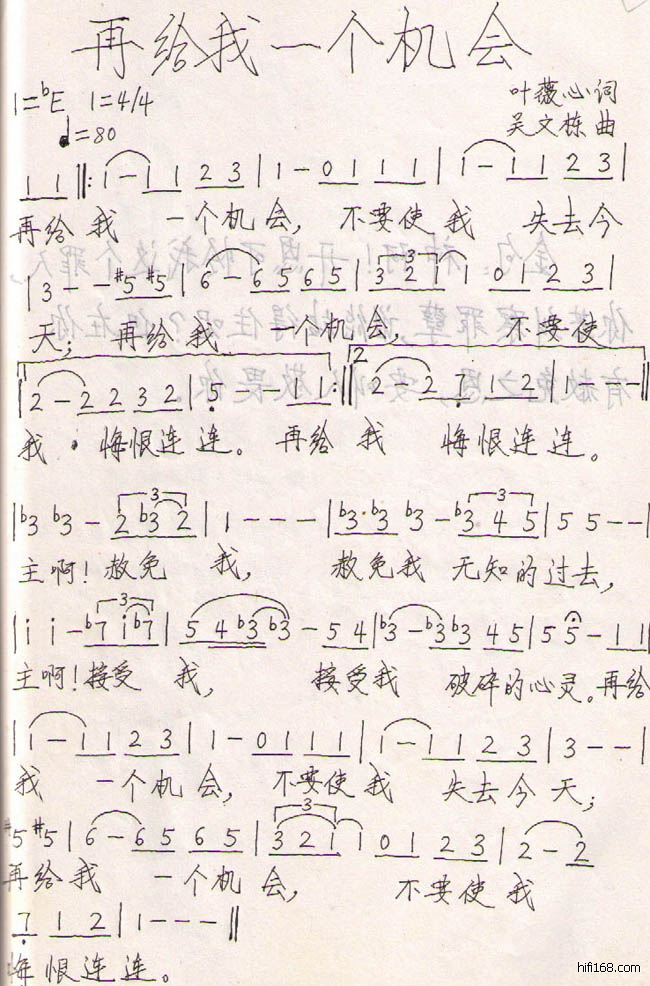 再给我一个机会
1=ᵇE 1=4/4
♩=80
叶薇心词
吴文栋曲
1 1 ‖: 1 - 1 1 2 3 | 1 - 0 1 1 1 | 1 - 1 1 2 3 |
再给我 一个机会, 不要使我 失去今
| 3 - - #5 #5 | 6 - 6 5 6 5 | 3 2 1 1 0 1 2 3 |
天; 再给我 一个机会, 不要使
| 2 - 2 2 3 2 | 5 - - 1 1 :‖ 2 2 - 2 7 1 2 | 1 - - - |
我 悔恨连连。 再给我 悔恨连连。
| b3 b3 - 2 b3 2 | 1 - - - | b3· b3 b3 - b3 4 5 | 5 5 - - |
主啊! 赦免 我, 赦免我 无知的过去,
| i i - b7 i b7 | 5 4 b3 b3 - 5 4 | b3 - b3 b3 4 5 | 5 5 - 1 1 |
主啊! 接受 我, 接受我 破碎的心灵。再给
| 1 - 1 1 2 3 | 1 - 0 1 1 1 | 1 - 1 1 2 3 | 3 - - |
我 一个机会, 不要使我 失去今天;
#5 #5 | 6 - 6 5 6 5 | 3 2 1 1 0 1 2 3 | 2 - 2
再给我 一个机会, 不要使我
7 1 2 | 1 - - - ‖
悔恨连连。
hifi168.com